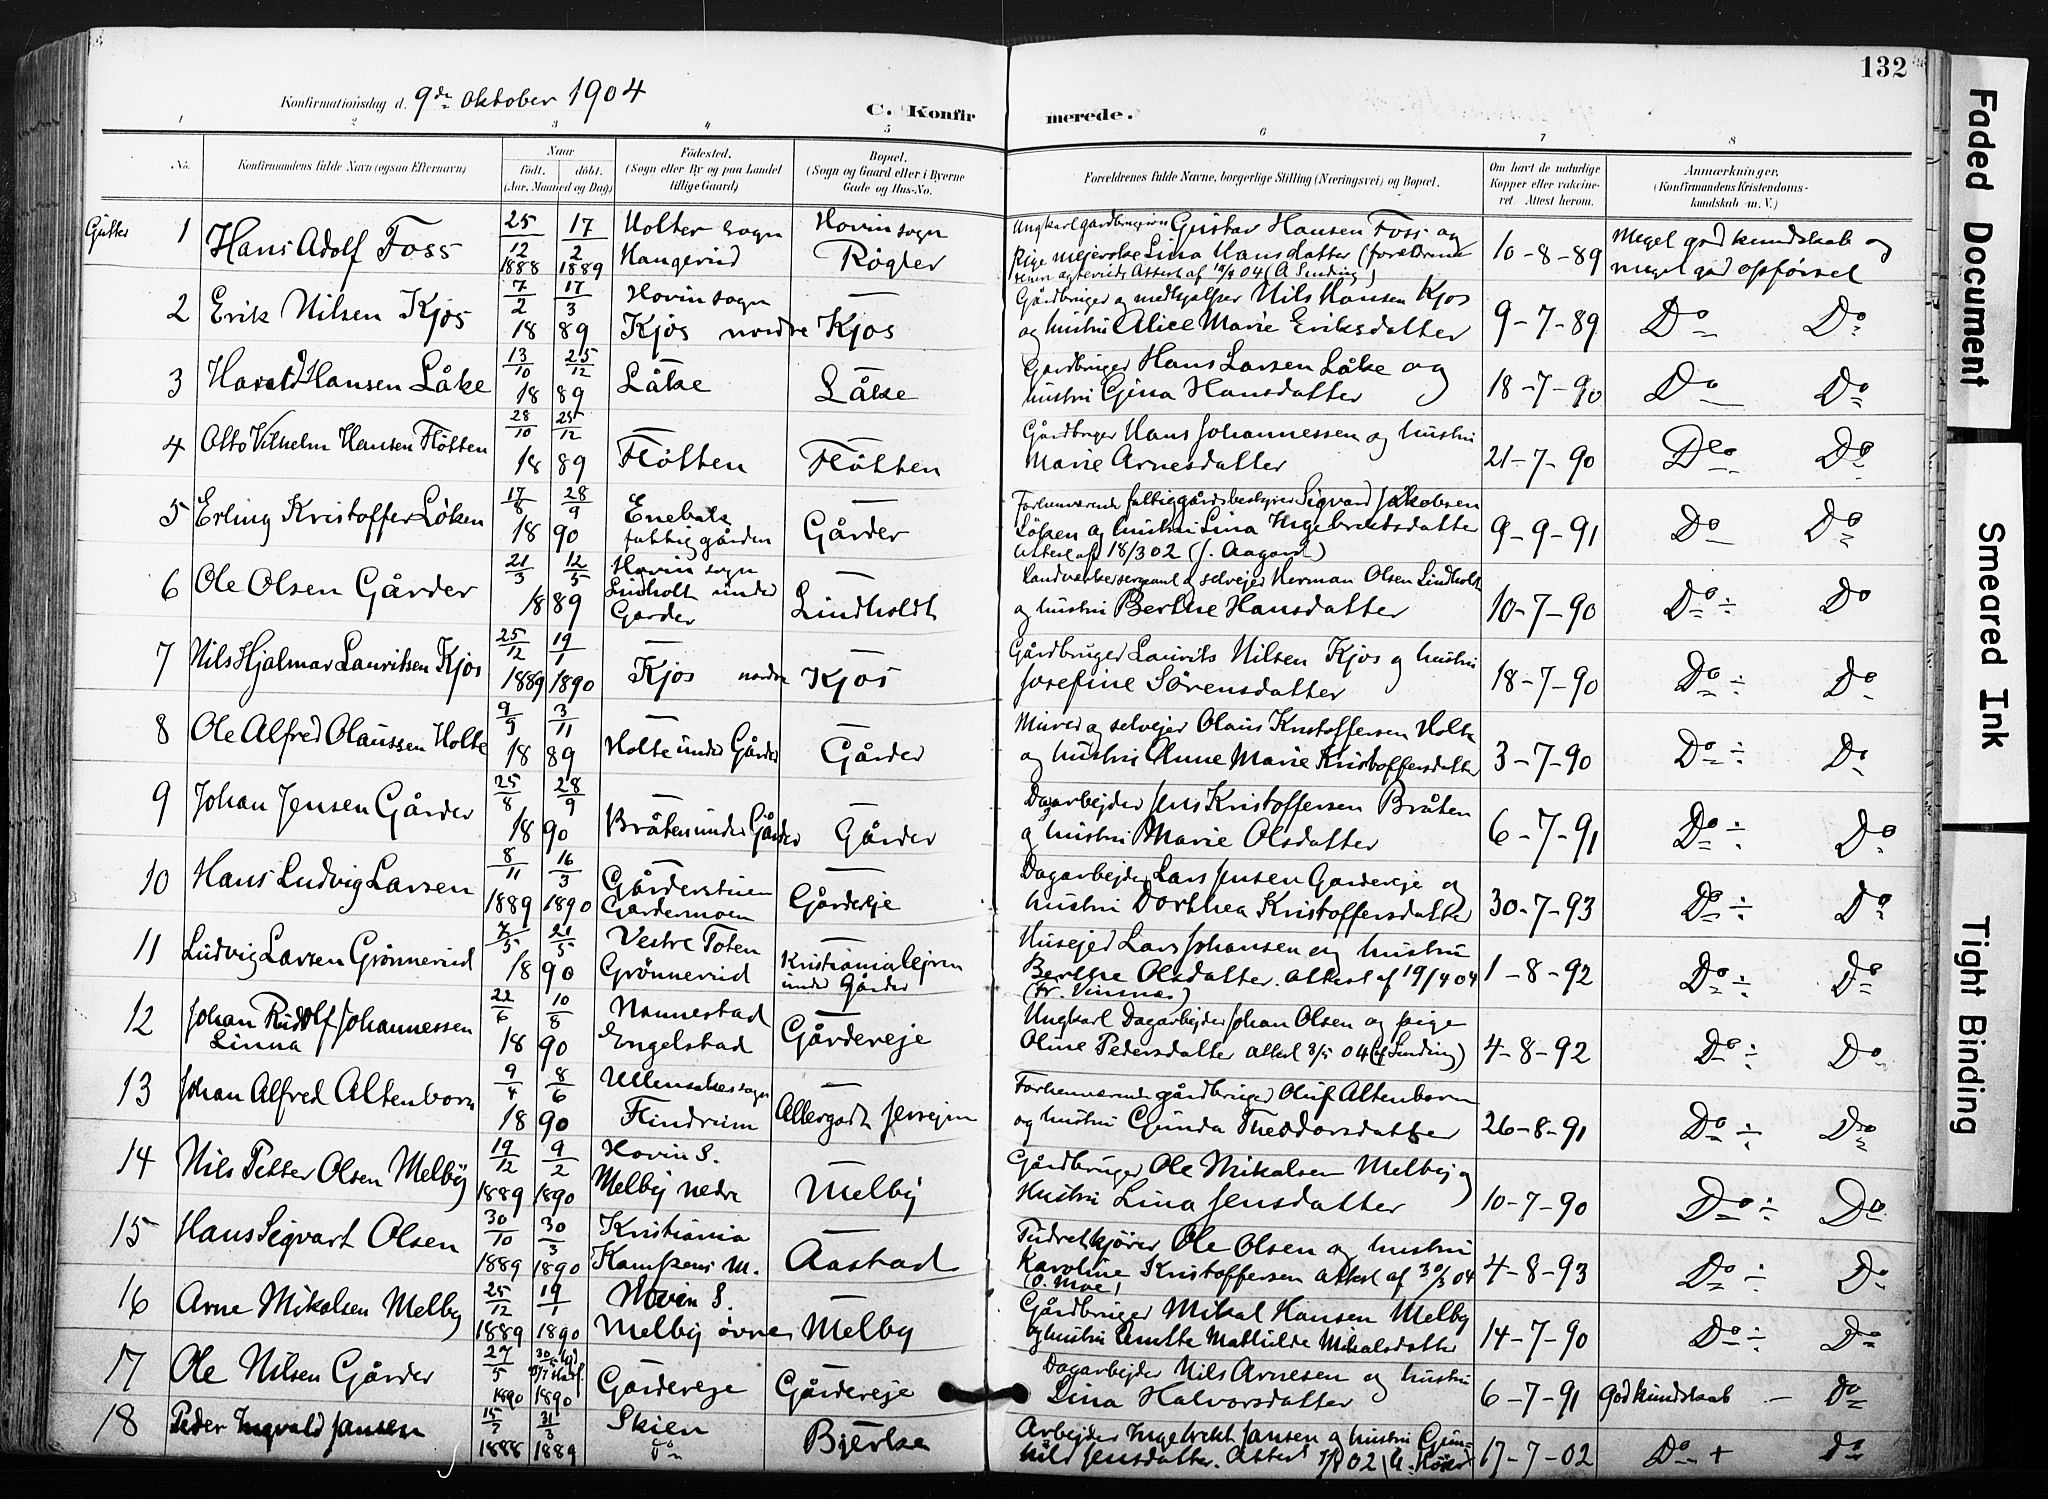 132
Konfirmationsdag d. 9de oktober 1904
C. Konfirmerede.
1 2 3 4 5 6 7 8
No. Konfirmandens fulde Navn (ogsaa Efternavn) Naar født. døbt. (Aar, Maaned og Dag) Fødested. (Sogn eller By og paa Landet tillige Gaard) Bopæl. (Sogn og Gaard eller i Byerne Gade og Hus-No. Forældrenes fulde Navne, borgerlige Stilling (Næringsvei) og Bopæl. Om havt de naturlige Kopper eller vakcineret. Attest herom. Anmærkninger. (Konfirmandens Kristendomskundskab m. V.)
Gutter 1 Hans Adolf Foss 25/12 1888 17/2 1889 Holter sogn Haugerud Hovin sogn Røgler Ungkarl gårdbruger Gustav Hansen Foss og pige mejerske Lina Hansdatter 10-8-89 Meget god kundskab og meget god opførsel
2 Erik Nilsen Kjos 7/2 17/3 1889 Hovin sogn Kjos nordre — Kjos Gårdbruger og medhjælper Nils Hansen Kjos og hustru Alice Marie Eriksdatter 9-7-89 Do Do
3 Harald Hansen Låke 13/10 25/12 1889 — Låke — Låke Gardbruger Hans Larsen Låke og hustru Gina Hansdatter 18-7-90 Do Do
4 Otto Vilhelm Hansen Fløtten 28/10 25/12 1889 — Fløtten — Fløtten Gårdbruger Hans Johannessen og hustru Marie Arnesdatter 21-7-90 Do Do
5 Erling Kristoffer Løken 17/8 28/9 1890 Enebak fattiggården — Gårder Forhenværende fattiggårdsbestyrer Sigvard Jakobsen Løken og hustru Lina Ingebretsdatter Attest af 18/3 02 (J. Aagard) 9-9-91 Do Do
6 Ole Olsen Gårder 21/3 12/5 1889 Hovin sogn Lindholt under Garder — Lindholdt Landværkssergeant og selvejer Herman Olsen Lindholt og hustru Berthe Hansdatter 10-7-90 Do ÷ Do
7 Nils Hjalmar Lauritsen Kjos 25/12 1889 19/1 1890 — Kjos nordre — Kjos Gårdbruger Laurits Nilsen Kjos og hustru Josefine Sørensdatter 18-7-90 Do ÷ Do
8 Ole Alfred Olaussen Holte 9/9 3/11 1889 — Holte under Gårder — Gårder Murer og selvejer Olaus Kristoffersen Holte og hustru Anne Marie Kristoffersdatter 3-7-90 Do ÷ Do
9 Johan Jensen Gårder 25/8 28/9 1890 — Bråten under Gårder — Gårder Dagarbejder Jens Kristoffersen Bråten og hustru Marie Olsdatter 6-7-91 Do ÷ Do
10 Hans Ludvig Larsen 8/11 1889 16/3 1890 — Gårderstuen Gardermoen — Gårdereje Dagarbejder Lars Jensen Gardereje og hustru Dorthea Kristoffersdatter 30-7-93 Do ÷ Do
11 Ludvig Larsen Grønnerud 7/5 21/5 1890 Vestre Toten Grønnerud — Kristianialejren under Gårder Husejer Lars Johansen og hustru Berthe Olsdatter. attest af 19/4 04 (Fr. Vinsnes) 1-8-92 Do ÷ Do
12 Johan Rudolf Johannessen Linna 22/6 10/8 1890 Nannestad Engelstad — Gårdereje Ungkarl Dagarbejder Johan Olsen og pige Oline Pedersdatter attest 3/5 04 4-8-92 Do ÷ Do
13 Johan Alfred Altenborn 9/4 8/6 1890 Ullensakersogn Flindrum — Allergodt Forhenværende gårdbruger Oluf Altenborn og hustru Gunda Theodorsdatter 26-8-91 Do ÷ Do
14 Nils Petter Olsen Melby 19/12 1889 9/2 1890 Hovin S. Melby nedre — Melby Gårdbruger Ole Mikalsen Melby og Hustru Lina Jensdatter 10-7-90 Do ÷ Do
15 Hans Sigvart Olsen 30/10 1889 30/3 1890 Kristiania Kampens M. — Aastad Pudretkjører Ole Olsen og hustru Karoline Kristoffersen attest af 30/3 04 (O. Moe) 4-8-93 Do ÷ Do
16 Arne Mikalsen Melby 25/12 1889 19/1 1890 Hovin S. Melby øvre — Melby Gårdbruger Mikal Hansen Melby og hustru Mathilde Mikalsdatter 14-7-90 Do ÷ Do
17 Ole Nilsen Gårder 27/5 1890 1890 — Gårdereje — Gårdereje Dagarbejder Nils Arnesen og hustru Lina Halvorsdatter 6-7-91 God kundskab — Do
18 Peder Ingvald Jansen 1888 31/3 1889 Skien do — Bjerke Arbejder Ingebrekt Jansen og hustru Gunhild Jensdatter. Attest 02 17-7-02 Do + Do
Faded Document
Smeared Ink
Tight Binding